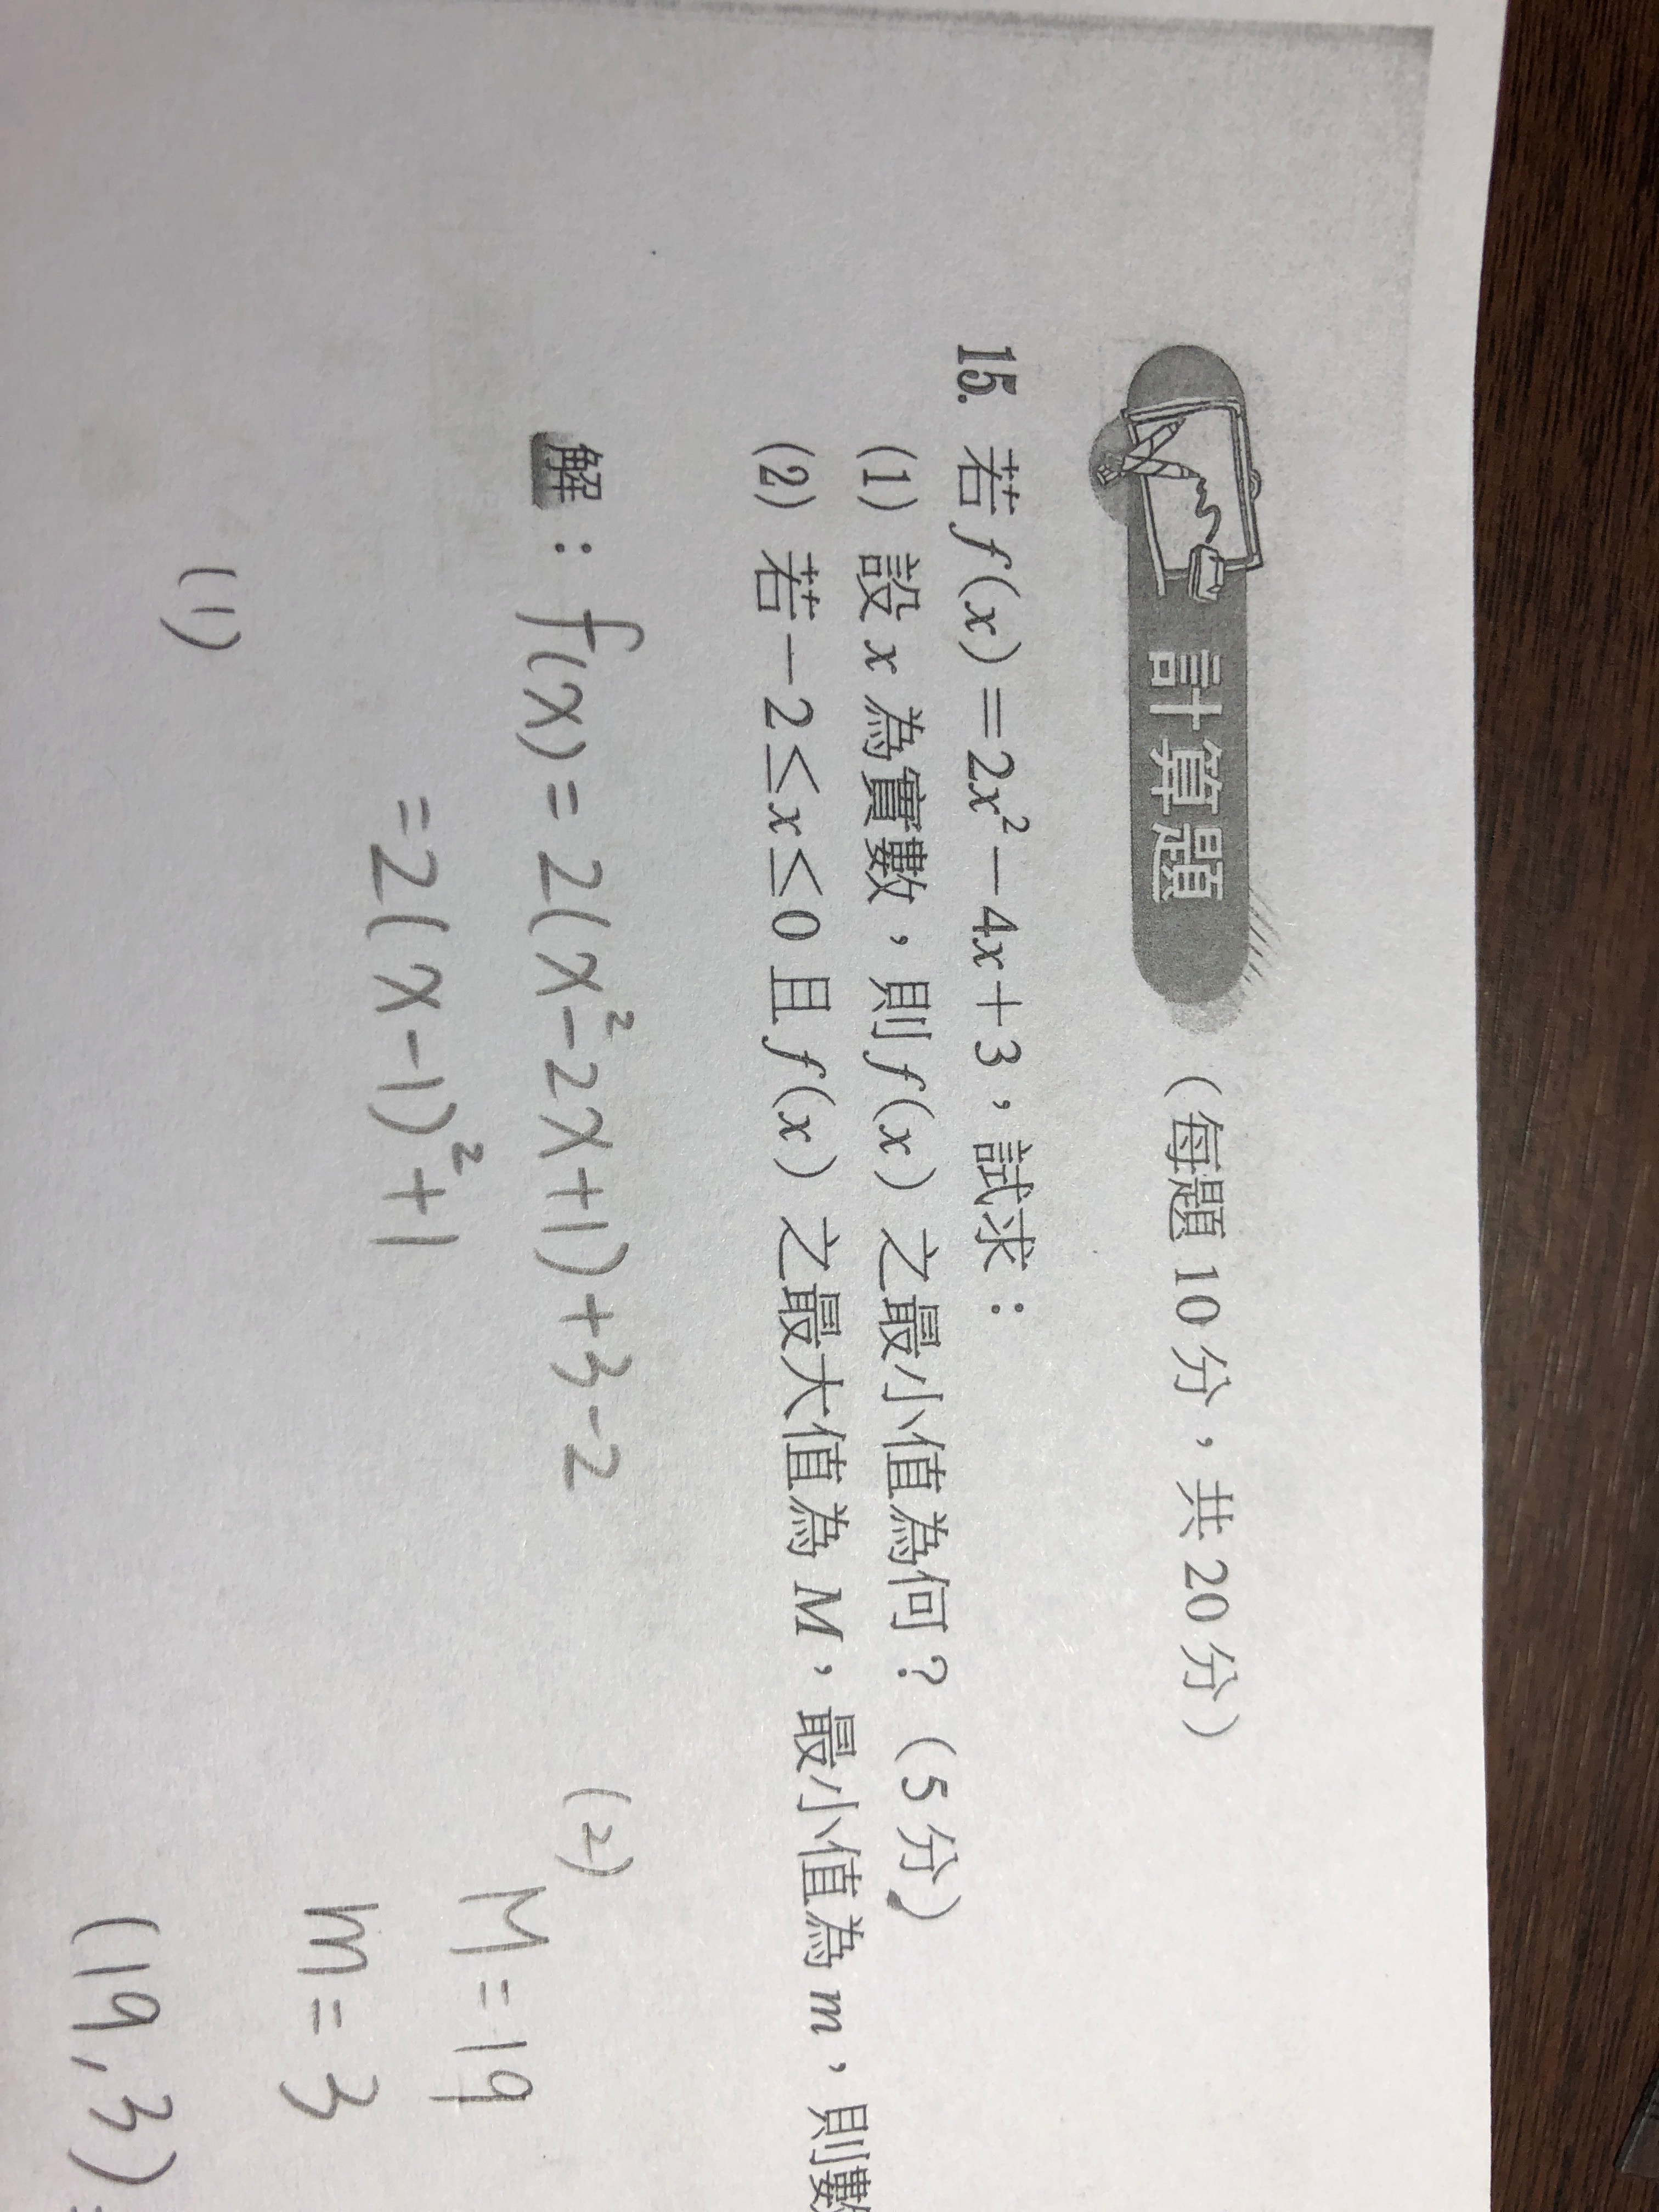 計算題（每題 10 分，共 20 分）
15. 若 f(x)＝2x²－4x＋3，試求：
(1) 設 x 為實數，則 f(x) 之最小值為何？（5 分）
(2) 若－2≤x≤0 且 f(x) 之最大值為 M，最小值為 m，則數
解：f(x)=2(x²-2x+1)+3-2
=2(x-1)²+1
(1)
(2)
M=19
m=3
(19,3)